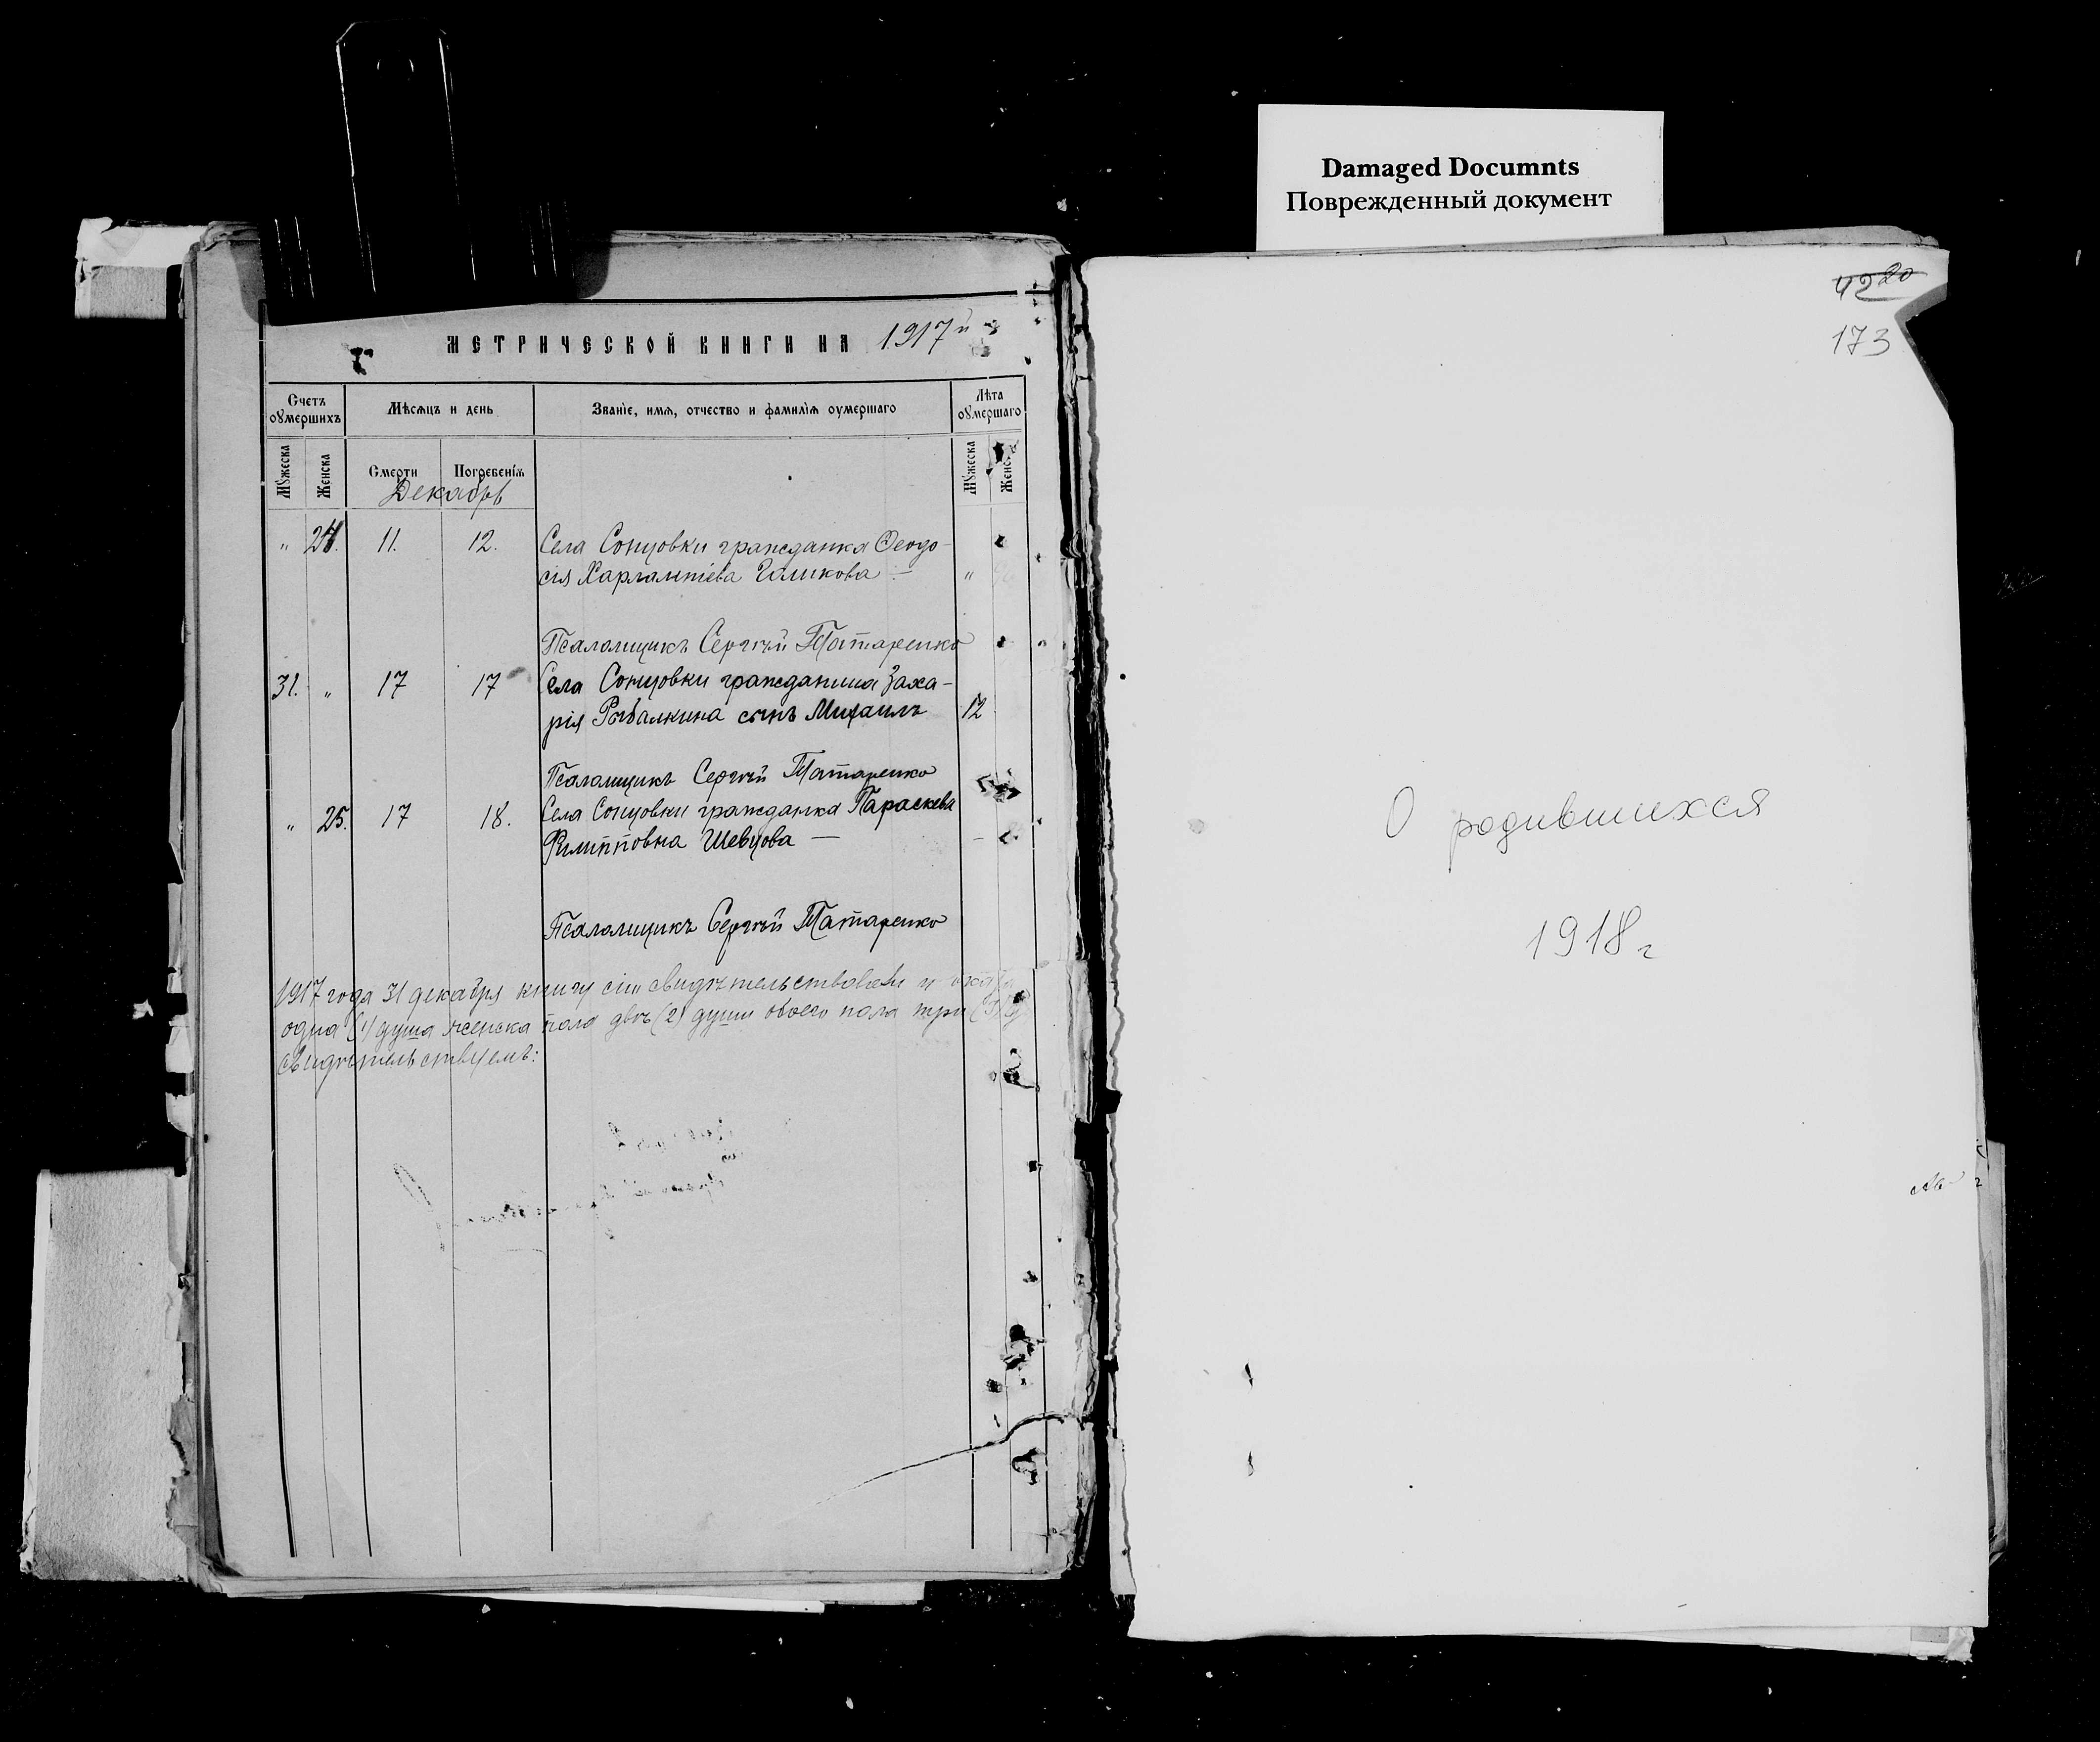 Damaged Documnts
Поврежденный документ
МЕТРИЧЕСКОЙ КНИГИ НА 1917й
Счетъ оумершихъ
Мѣсяцъ и день
Званіе, имя, отчество и фамилія оумершаго
Лѣта оумершаго
Мужеска
Женска
Смерти
Погребенія
Мужеска
Женс
Декабрь
" 24. 11. 12. Села Сонцовки гражданка Ѳеодо-
сія Харлампіева Голикова — "
Псаломщикъ Сергѣй Татаренко
31. " 17 17 Села Сонцовки гражданина Заха-
рія Рыбалкина сынъ Михаилъ 12
Псаломщикъ Сергѣй Татаренко
" 25. 17 18. Села Сонцовки гражданка Параскева
Филипповна Шевцова —
Псаломщикъ Сергѣй Татаренко
1917 года 31 декабря книгу сію свидѣтельствовали и
одна (1) душа женска пола двѣ (2) души обоего пола три (3)
свидѣтельствуемъ:
4220
173
О родившихся
1918 г